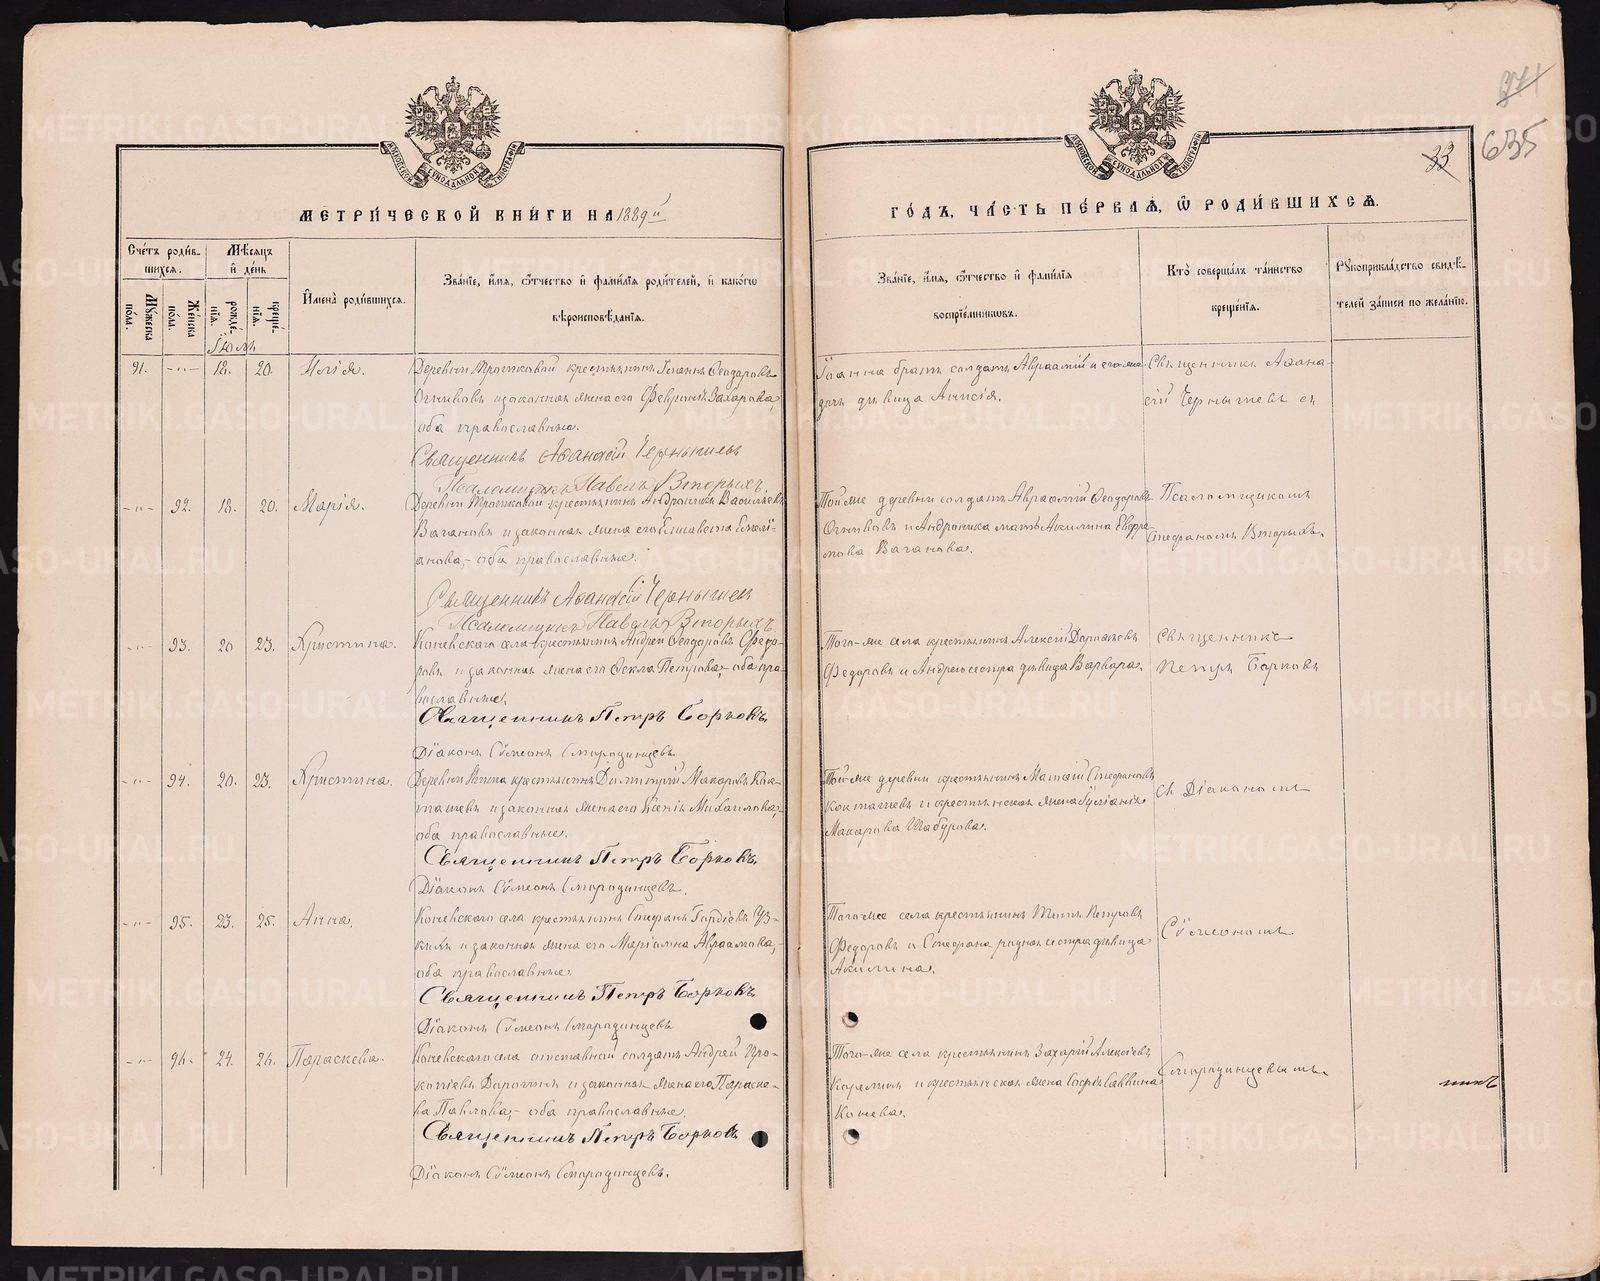 МЕТРИ́ЧЕСКОЙ КНИ́ГИ НА 1889й
ГО́ДЪ, ЧА́СТЬ ПЕ́РВАѦ, Ѡ҆ РОДИ́ВШИХСѦ.
33
635
Сче́тъ роди́в-
шихсѧ.
Мѣ́сѧцъ
и҆ де́нь
Мꙋ́жеска по́ла.
Же́нска по́ла.
рожде́-нїѧ.
креще́-нїѧ.
И҆мена̀ роди́вшихсѧ.
Зва́нїе, и҆́мѧ, ѻ҆́тчество и҆ фами́лїѧ роди́телей, и҆ како́гѡ
вѣроисповѣ́данїѧ.
Зва́нїе, и҆́мѧ, ѻ҆́тчество и҆ фами́лїѧ
воспрїе́мникѡвъ.
Кто̀ соверша́лъ та́инство
креще́нїѧ.
Рꙋкоприкла́дство свидѣ́-
телей за́писи по жела́нїю.
Іюль
91. -"- 18. 20. Илія.
Деревни крестьянинъ Іоаннъ Ѳеодоровъ
Огнивовъ и законная жена его Февронія Захарова,
оба православные.
Священникъ Аѳанасій Чернышевъ
Псаломщикъ Павелъ Вторыхъ.
Іоанна братъ солдатъ Авраамій и его же
дочь дѣвица Анисія.
Священникъ Аѳана-
сій Чернышевъ съ
-"- 92. 18. 20. Марія.
Деревни крестьянинъ Андроникъ Васильевъ
Вагановъ и законная жена его Елисавета Емелі-
анова,- оба православные.
Священникъ Аѳанасій Чернышевъ
Псаломщикъ Павелъ Вторыхъ
Той-же деревни солдатъ Авраамій Ѳеодоровъ
Огнивовъ и Андроника мать Акилина Евфра-
мова Ваганова.
Псаломщикомъ
Стефаномъ Вторыхъ.
-"- 93. 20 23. Христина.
Коневскаго села крестьянинъ Андрей Ѳеодоровъ Федо-
ровъ и законная жена его Ѳекла Петрова,- оба пра-
вославные.
Священникъ Петръ Борковъ
Діаконъ Сѵмеонъ Смородинцевъ
Того-же села крестьянинъ Алексій Дороѳеевъ
Федоровъ и Андрею сестра дѣвица Варвара.
Священникъ
Петръ Борковъ
-"- 94. 20. 23. Христина.
Деревни крестьянинъ Димитрій Макаровъ Кок-
ташевъ и законная жена его Ксенія Михаилова,-
оба православные.
Священникъ Петръ Борковъ.
Діаконъ Сѵмеонъ Смородинцевъ.
Той-же деревни крестьянинъ Стефановъ
Кокташевъ и крестьянская жена Іуліанія
Макарова Шабурова.
съ Діакономъ
-"- 95. 23. 25. Анна.
Коневскаго села крестьянинъ Стефанъ Гордіевъ Уз-
кихъ и законная жена его Маріамна Авраамова,-
оба православные
Священникъ Петръ Борковъ
Діаконъ Сѵмеонъ Смородинцевъ
Того-же села крестьянинъ Петровъ
Федоровъ и Стефана родная сестра дѣвица
Акилина.
Сѵмеономъ
-"- 96. 24. 26. Параскева.
Коневскаго села отставной солдатъ Андрей Про-
копіевъ и законная жена его Параске-
ва Павлова,- оба православные.
Священникъ Петръ Борковъ
Діаконъ Сѵмеонъ Смородинцевъ.
Того-же села крестьянинъ Захарій Алексіевъ
Корелинъ и крестьянская жена Софія Саввина
Конева.
Смородинцевымъ.
METRIKI.GASO-URAL.RU